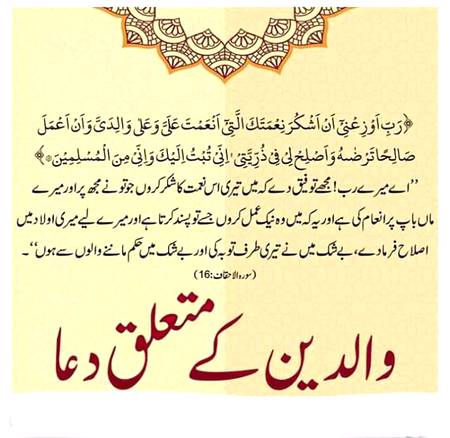 ﴿رَبِّ اَوْزِعْنِیْۤ اَنْ اَشْكُرَ نِعْمَتَكَ الَّتِیْۤ اَنْعَمْتَ عَلَیَّ وَعَلٰی وَالِدَیَّ وَاَنْ اَعْمَلَ
صَالِحًا تَرْضٰىهُ وَاَصْلِحْ لِیْ فِیْ ذُرِّیَّتِیْ ۚ اِنِّیْ تُبْتُ اِلَیْكَ وَاِنِّیْ مِنَ الْمُسْلِمِیْنَ﴾
’’اے میرے رب! مجھے توفیق دے کہ میں تیری اس نعمت کا شکر کروں جو تو نے مجھ پر اور میرے
ماں باپ پر انعام کی ہے اور یہ کہ میں وہ نیک عمل کروں جسے تو پسند کرتا ہے اور میرے لیے میری اولاد میں
اصلاح فرما دے، بے شک میں نے تیری طرف توبہ کی اور بے شک میں حکم ماننے والوں سے ہوں‘‘۔
(سورہ الاحقاف:16)
والدین کے متعلق دعا